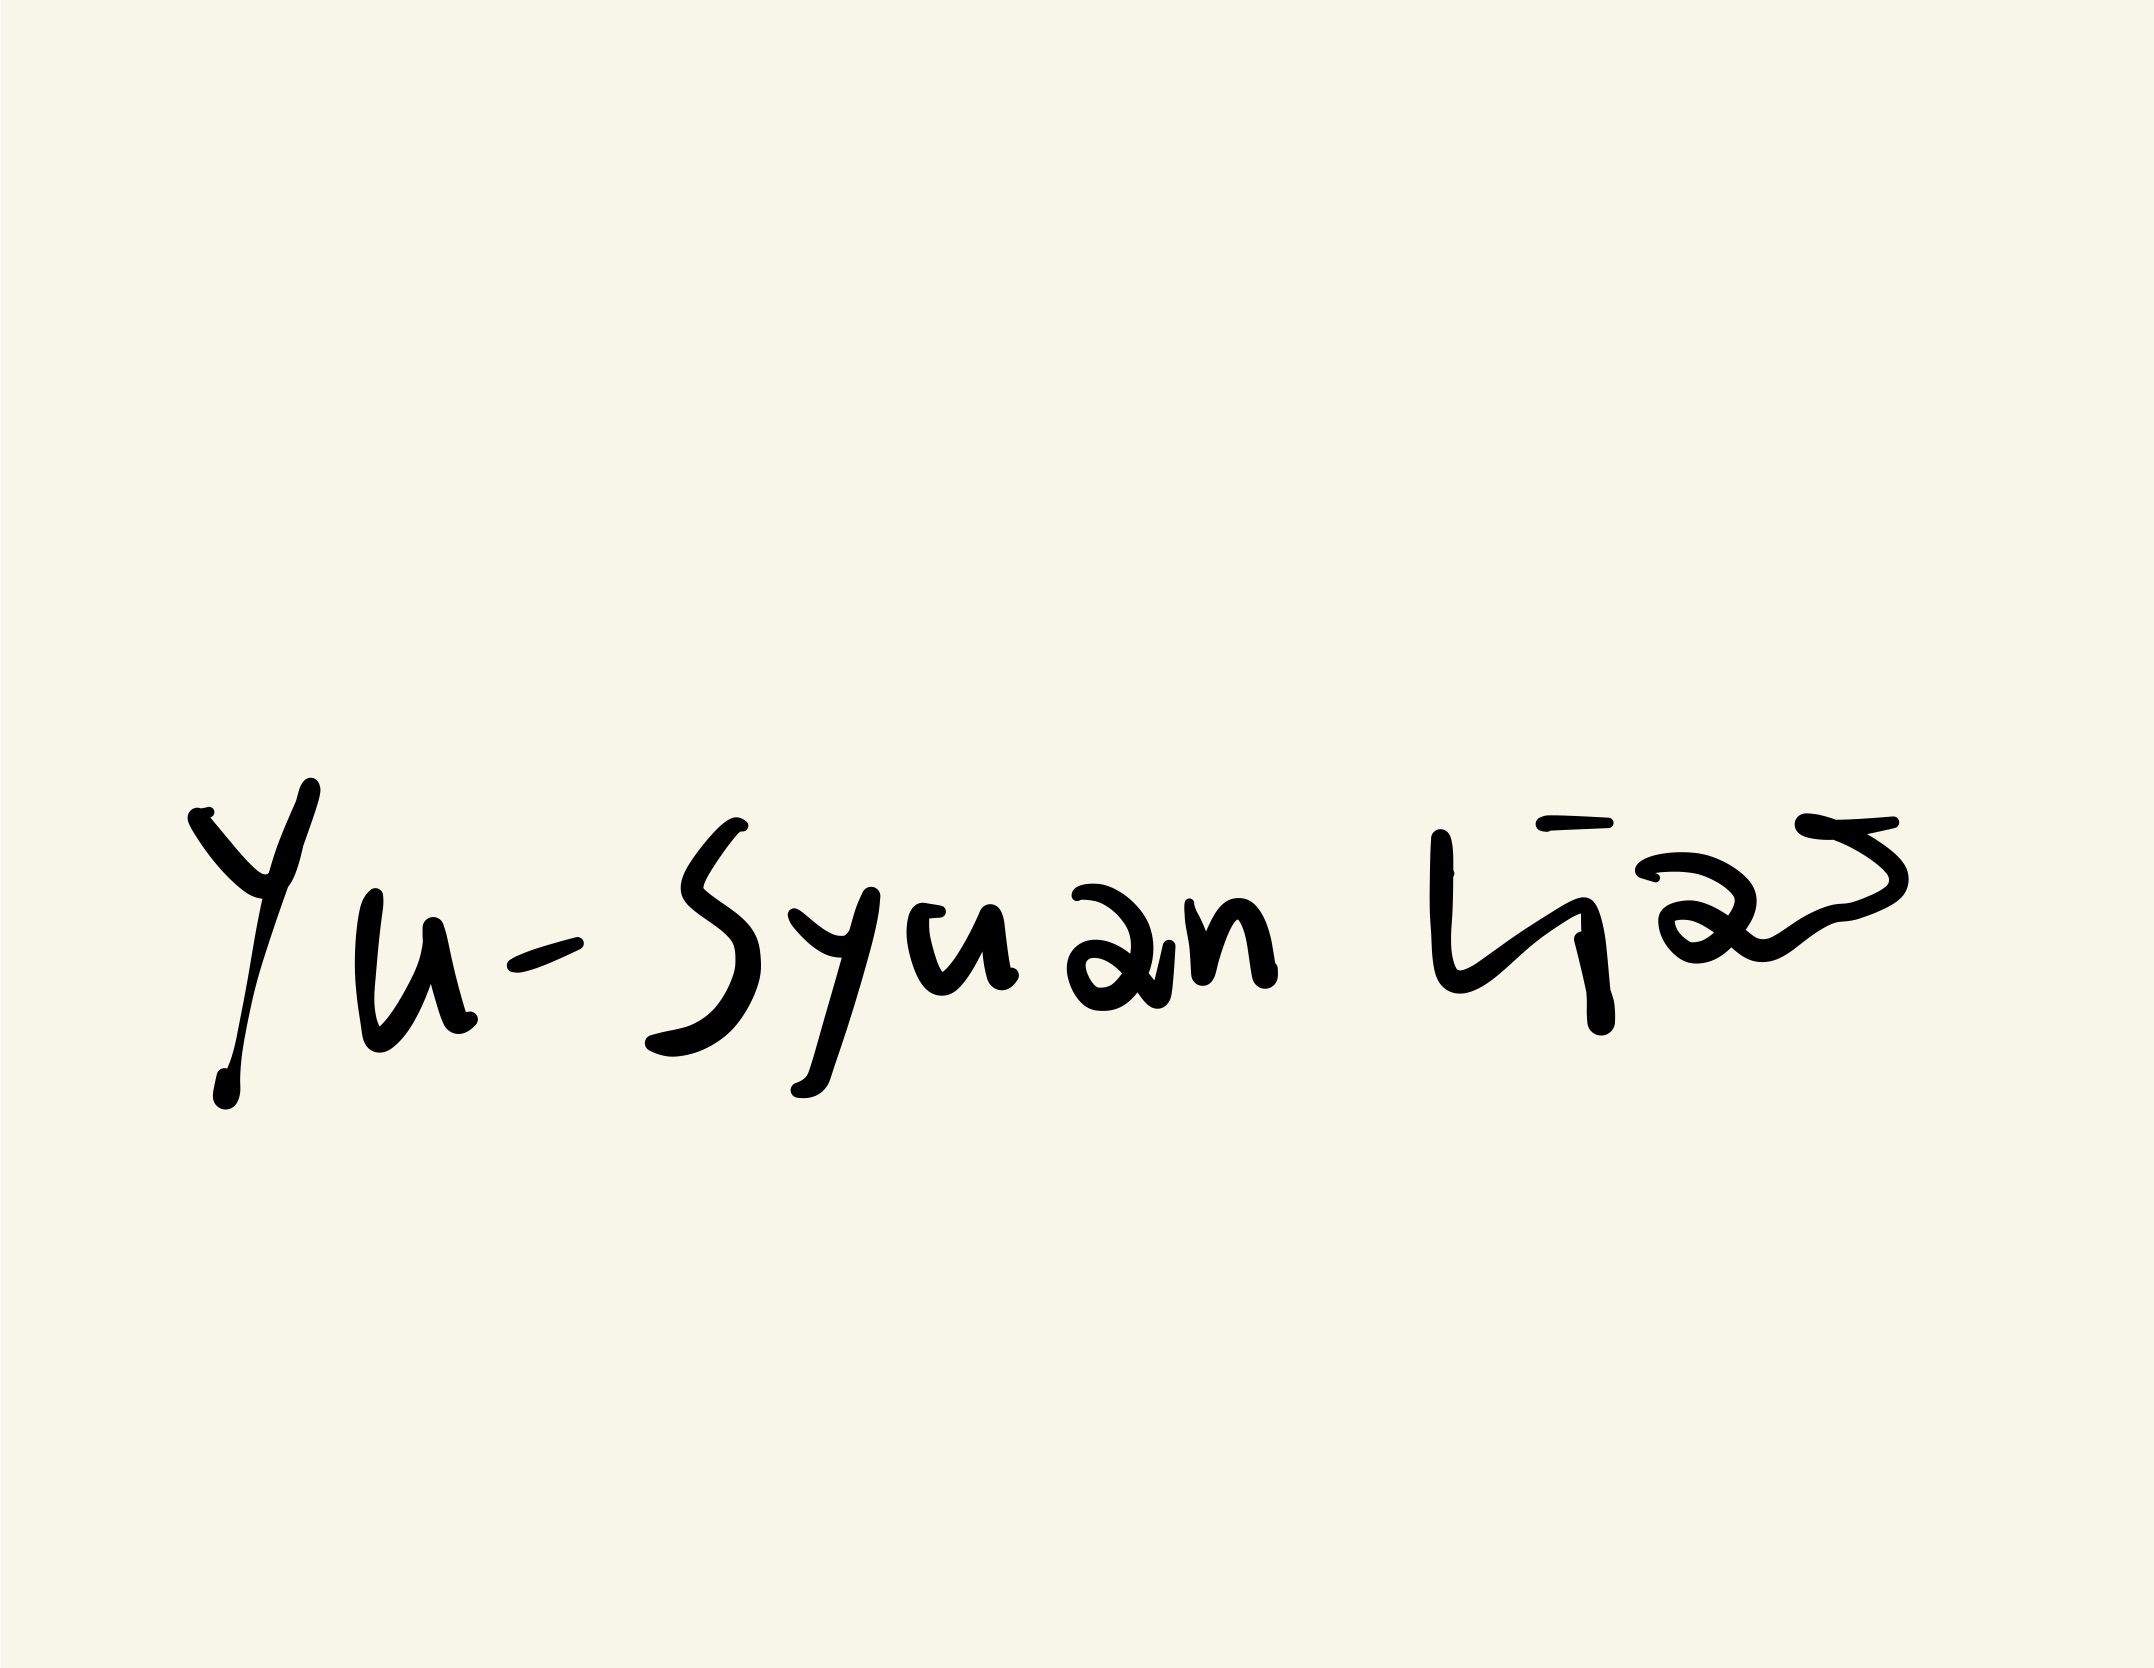 Yu-Syuan Liao